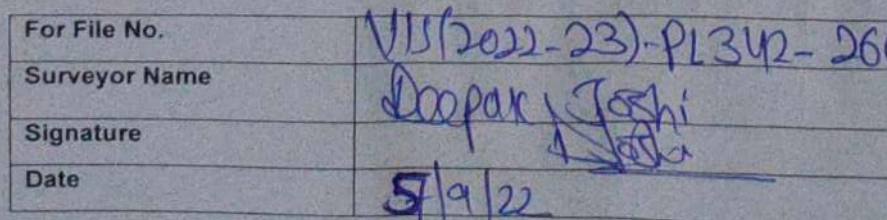 For File No. VIS(2022-23)-PL342-
Surveyor Name Deepak Joshi
Signature
Date 5/9/22